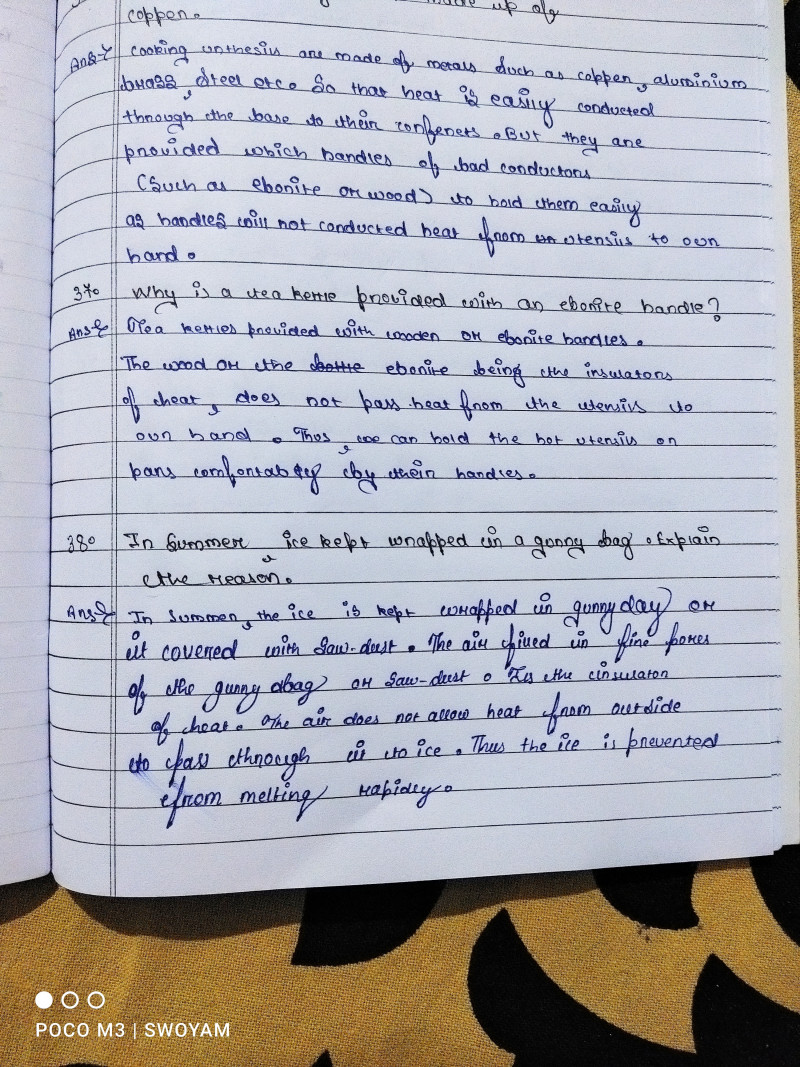 made up of
copper.
Ans:- cooking unthesis are made of metals such as copper, aluminium
brass, steel etc. So that heat is easily conducted
through the base to their confeners. But they are
provided which handles of bad conductors
(Such as ebonite or wood) to hold them easily
as handles will not conducted heat from utensils to our
hand.
37. Why is a tea kettle provided with an ebonite handle?
Ans:- Tea kettles provided with wooden or ebonite handles.
The wood or the ebonite being the insulators
of heat, does not pass heat from the utensils to
our hand. Thus, we can hold the hot utensils or
pans comfortably by their handles.
38. In Summer ice kept wrapped in a gunny bag. Explain
the reason.
Ans:- In Summer, the ice is kept wrapped in gunny day or
it covered with Saw-dust. The air fined in fine pores
of the gunny bag or saw-dust. Is the insulator
of heat. The air does not allow heat from outside
to pass through it to ice. Thus the ice is prevented
from melting rapidey.
POCO M3 | SWOYAM